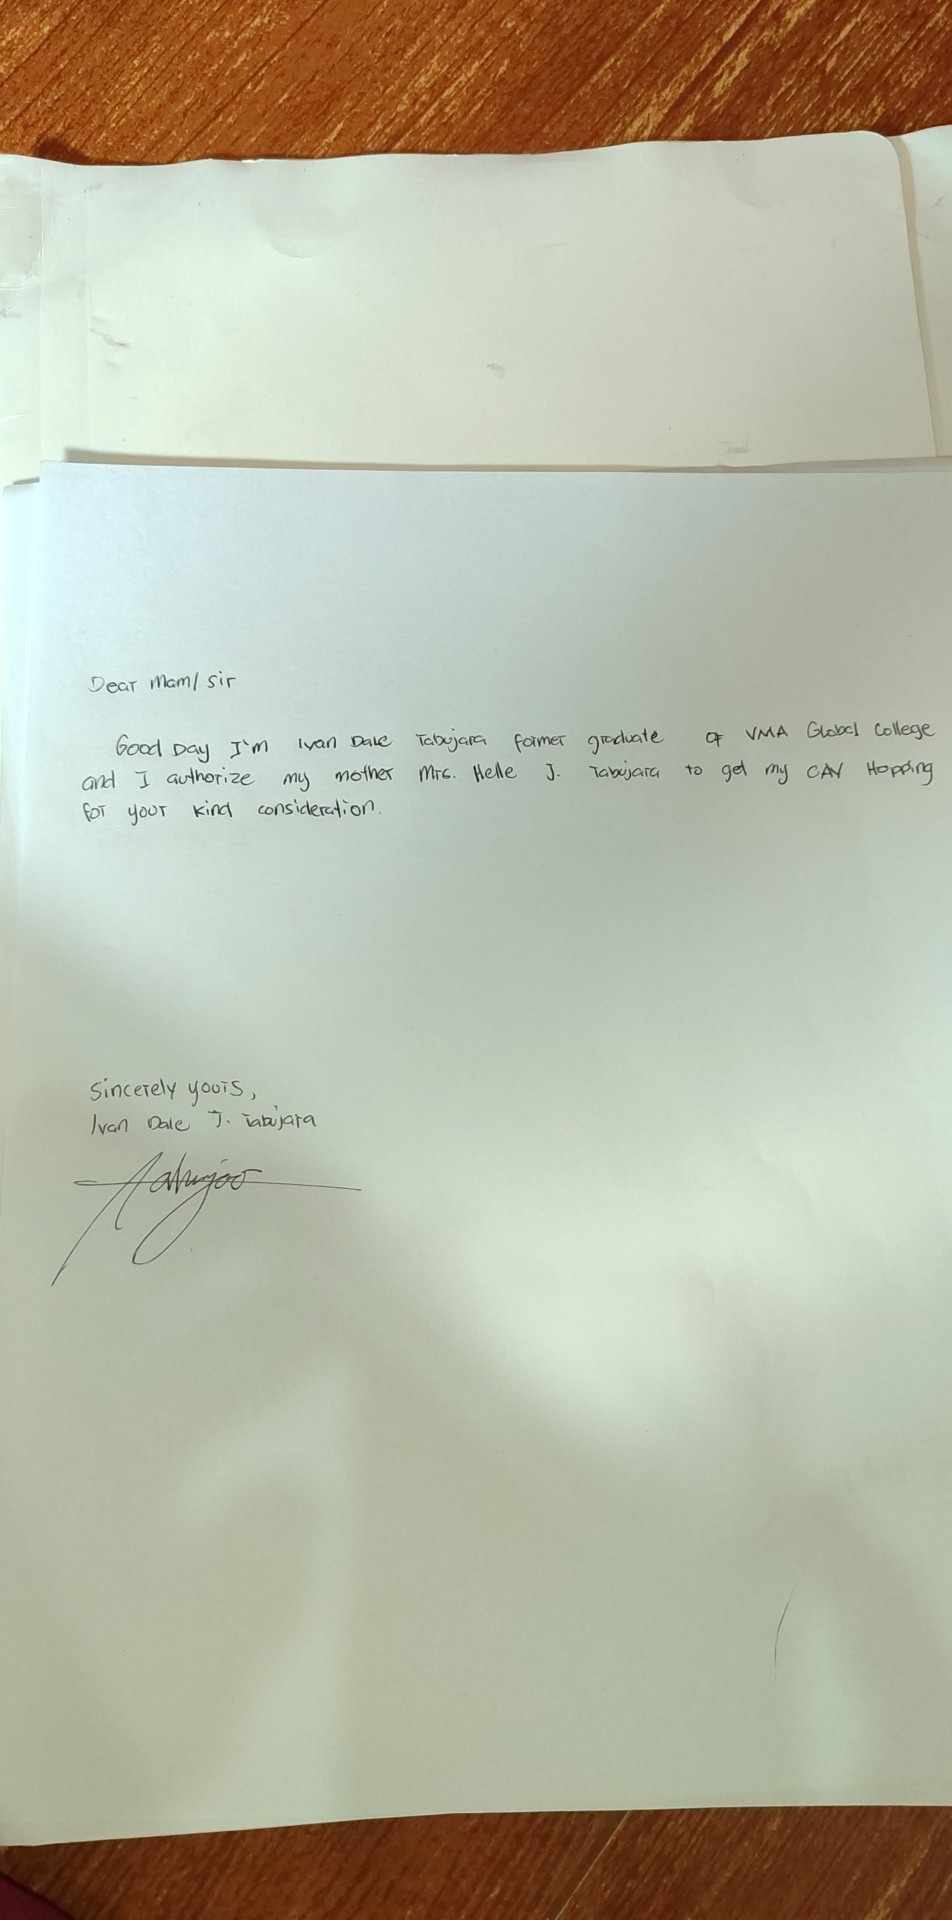 Dear Mam/ Sir
Good Day I'm Ivan Dale Tabujara former graduate of VMA Global College
and I authorize my mother Mrs. Helle J. Tabujara to get my CAV Hopping
for your kind consideration.
Sincerely yours,
Ivan Dale J. Tabujara